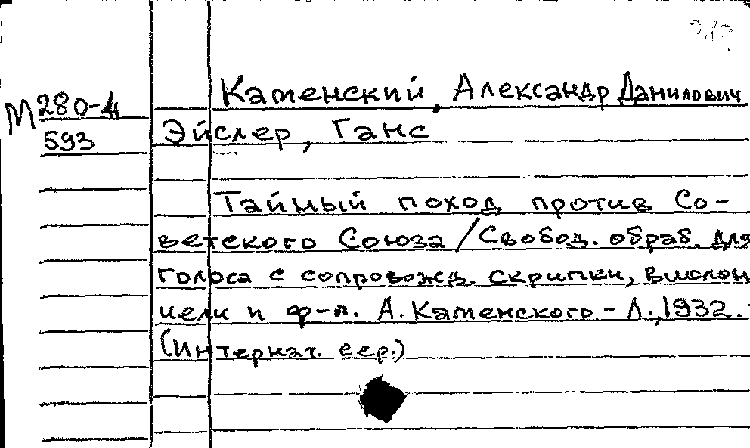 Каменский, Александр Данилович
М 280-4
593
Эйслер, Ганс
Тайный поход против Со-
ветского Союза/Свобод. обраб. для
голоса с сопровожд. скрипки, виолон
чели и ф-п. А. Каменского - Л., 1932.
(Интернат. сер.)